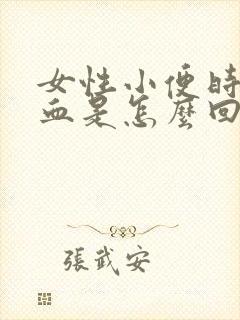 女性小便时
血是怎麼回
張武安